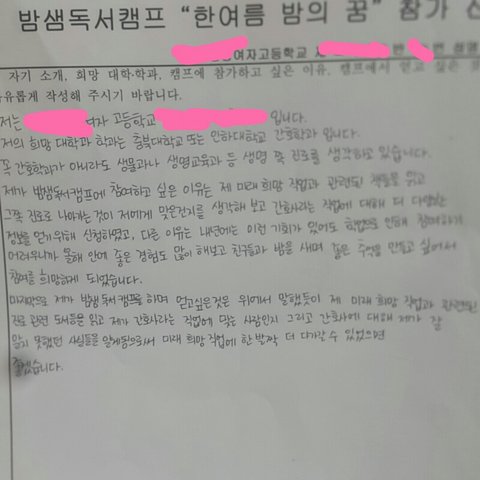 밤샘독서캠프 "한여름 밤의 꿈" 참가 신
여자고등학교
자기 소개, 희망 대학·학과, 캠프에 참가하고 싶은 이유, 캠프에서 얻고 싶은
유롭게 작성해 주시기 바랍니다.
저는 여자 고등학교 입니다.
저의 희망 대학과 학과는 충북대학교 또는 인하대학교 간호학과 입니다.
꼭 간호학과가 아니라도 생물과나 생명교육과 등 생명 쪽 진로를 생각하고 있습니다.
제가 밤샘독서캠프에 참여하고 싶은 이유는 제 미래 희망 직업과 관련된 책들을 읽고
그쪽 진로로 나아가는 것이 저에게 맞은건지를 생각해 보고 간호사라는 직업에 대해 더 다양한
정보를 얻기 위해 신청하였고, 다른 이유는 내년에는 이런 기회가 있어도 학업으로 인해 참여하기
어려우니까 올해 안에 좋은 경험도 많이 해보고 친구들과 밤을 새며 좋은 추억을 만들고 싶어서
참여를 희망하게 되었습니다.
마지막으로 제가 밤샘 독서 캠프를 하며 얻고싶은것은 위에서 말했듯이 제 미래 희망 직업과 관련된
진로 관련 도서들을 읽고 제가 간호사라는 직업에 맞는 사람인지 그리고 간호사에 대해 제가 잘
알지 못했던 사실들을 알게됨으로서 미래 희망 직업에 한 발짝 더 다가갈 수 있었으면
좋겠습니다.